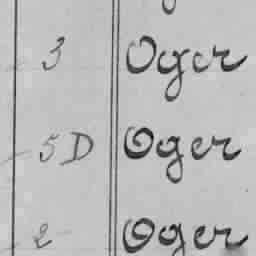 3 Oger
5D Oger
2 Oger